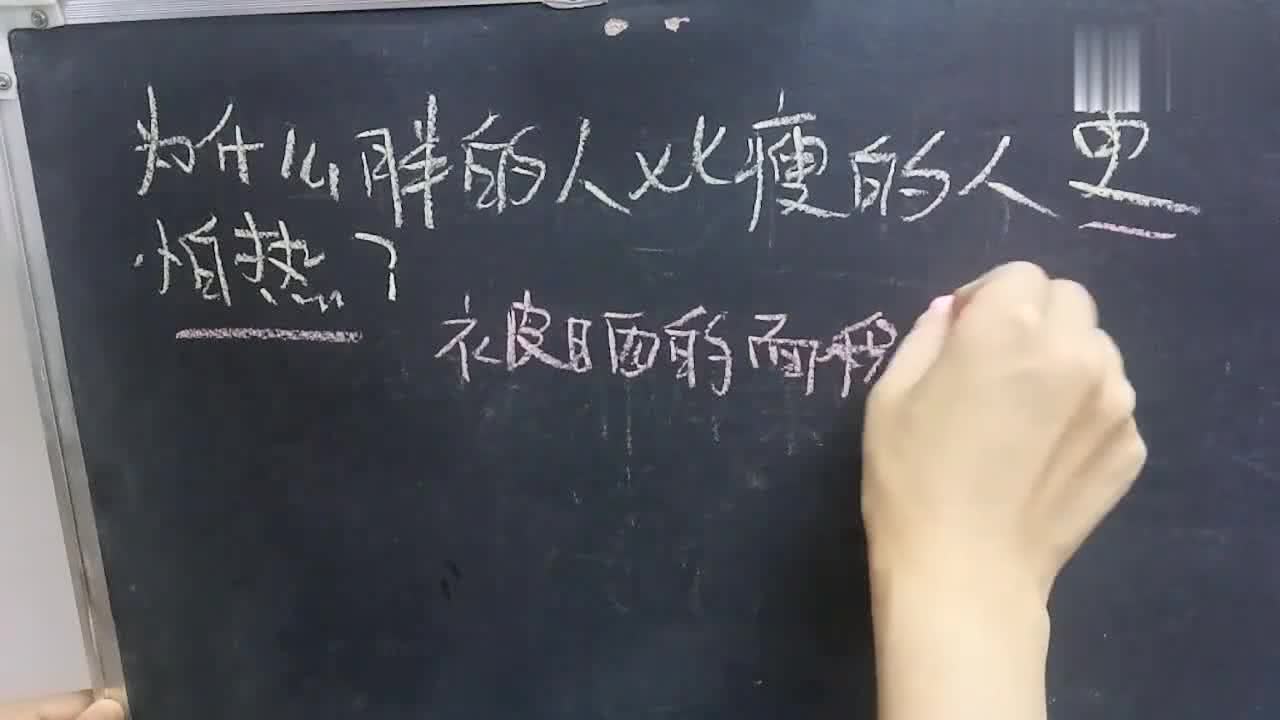 为什么胖的人比瘦的人更
怕热?
被晒的面积